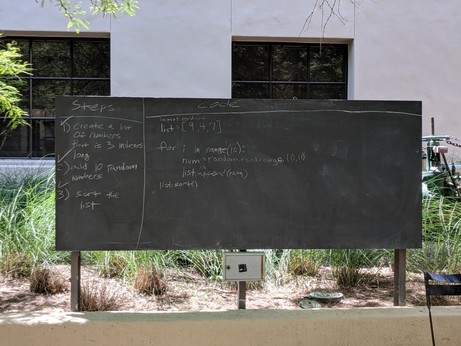 Steps
1) create a list
of numbers
that is 3 indexes
long
2) add 10 random
numbers
3) sort the
list
Code
import random
list = [9,4,7]
for i in range(10):
num = random.randrange(0,10)
list.append(num)
list.sort()